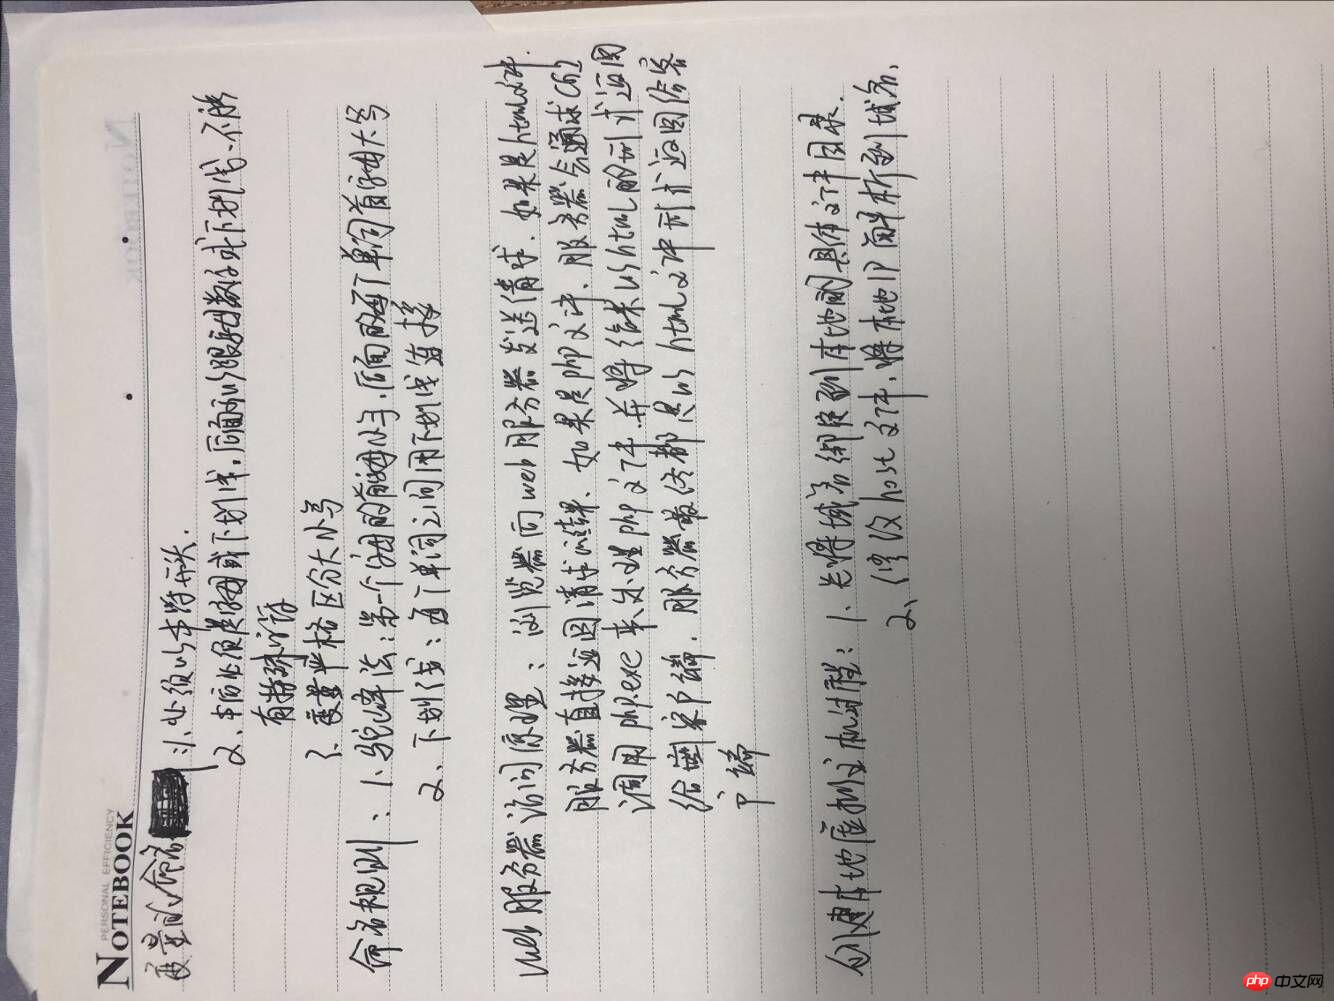 PERSONAL EFFICIENCY
NOTEBOOK
变量的命名:1、必须以$符开头.
2、$后必须是字母或下划线,后面可以跟字母数字或下划线,不能
有特殊字符
3、变量严格区分大小写
命名规则、1、驼峰法:第一个字母的首字母小写,后面的每个单词首字母大写
2、下划线:每个单词之间用下划线连接
web服务器访问原理:浏览器向web服务器发送请求,如果是html文件.
服务器直接返回请求结果、如果是php文件、服务器会通过CGI
调用php.exe来处理php文件.并将结果以html的形式返回
给客户端.服务器最终都是以html文件形式返回给客
户端
创建本地虚拟主机过程:1、先将域名绑定到本地的具体文件目录.
2、修改host文件,将本地IP解析到域名、
php中文网